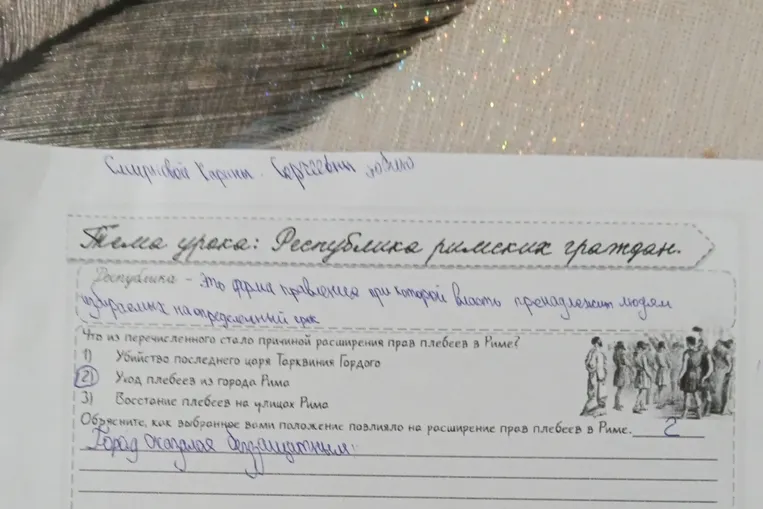 Смирновой Карины Сергеевны
Тема урока: Республика римских граждан.
Республика - это форма правления при которой власть пренадлежит людям
избираемых на определенный срок
Что из перечисленного стало причиной расширения прав плебеев в Риме?
1) Убийство последнего царя Тарквиния Гордого
2) Уход плебеев из города Рима
3) Восстание плебеев на улицах Рима
Объясните, как выбранное вами положение повлияло на расширение прав плебеев в Риме. 2
Город оказался беззащитным.